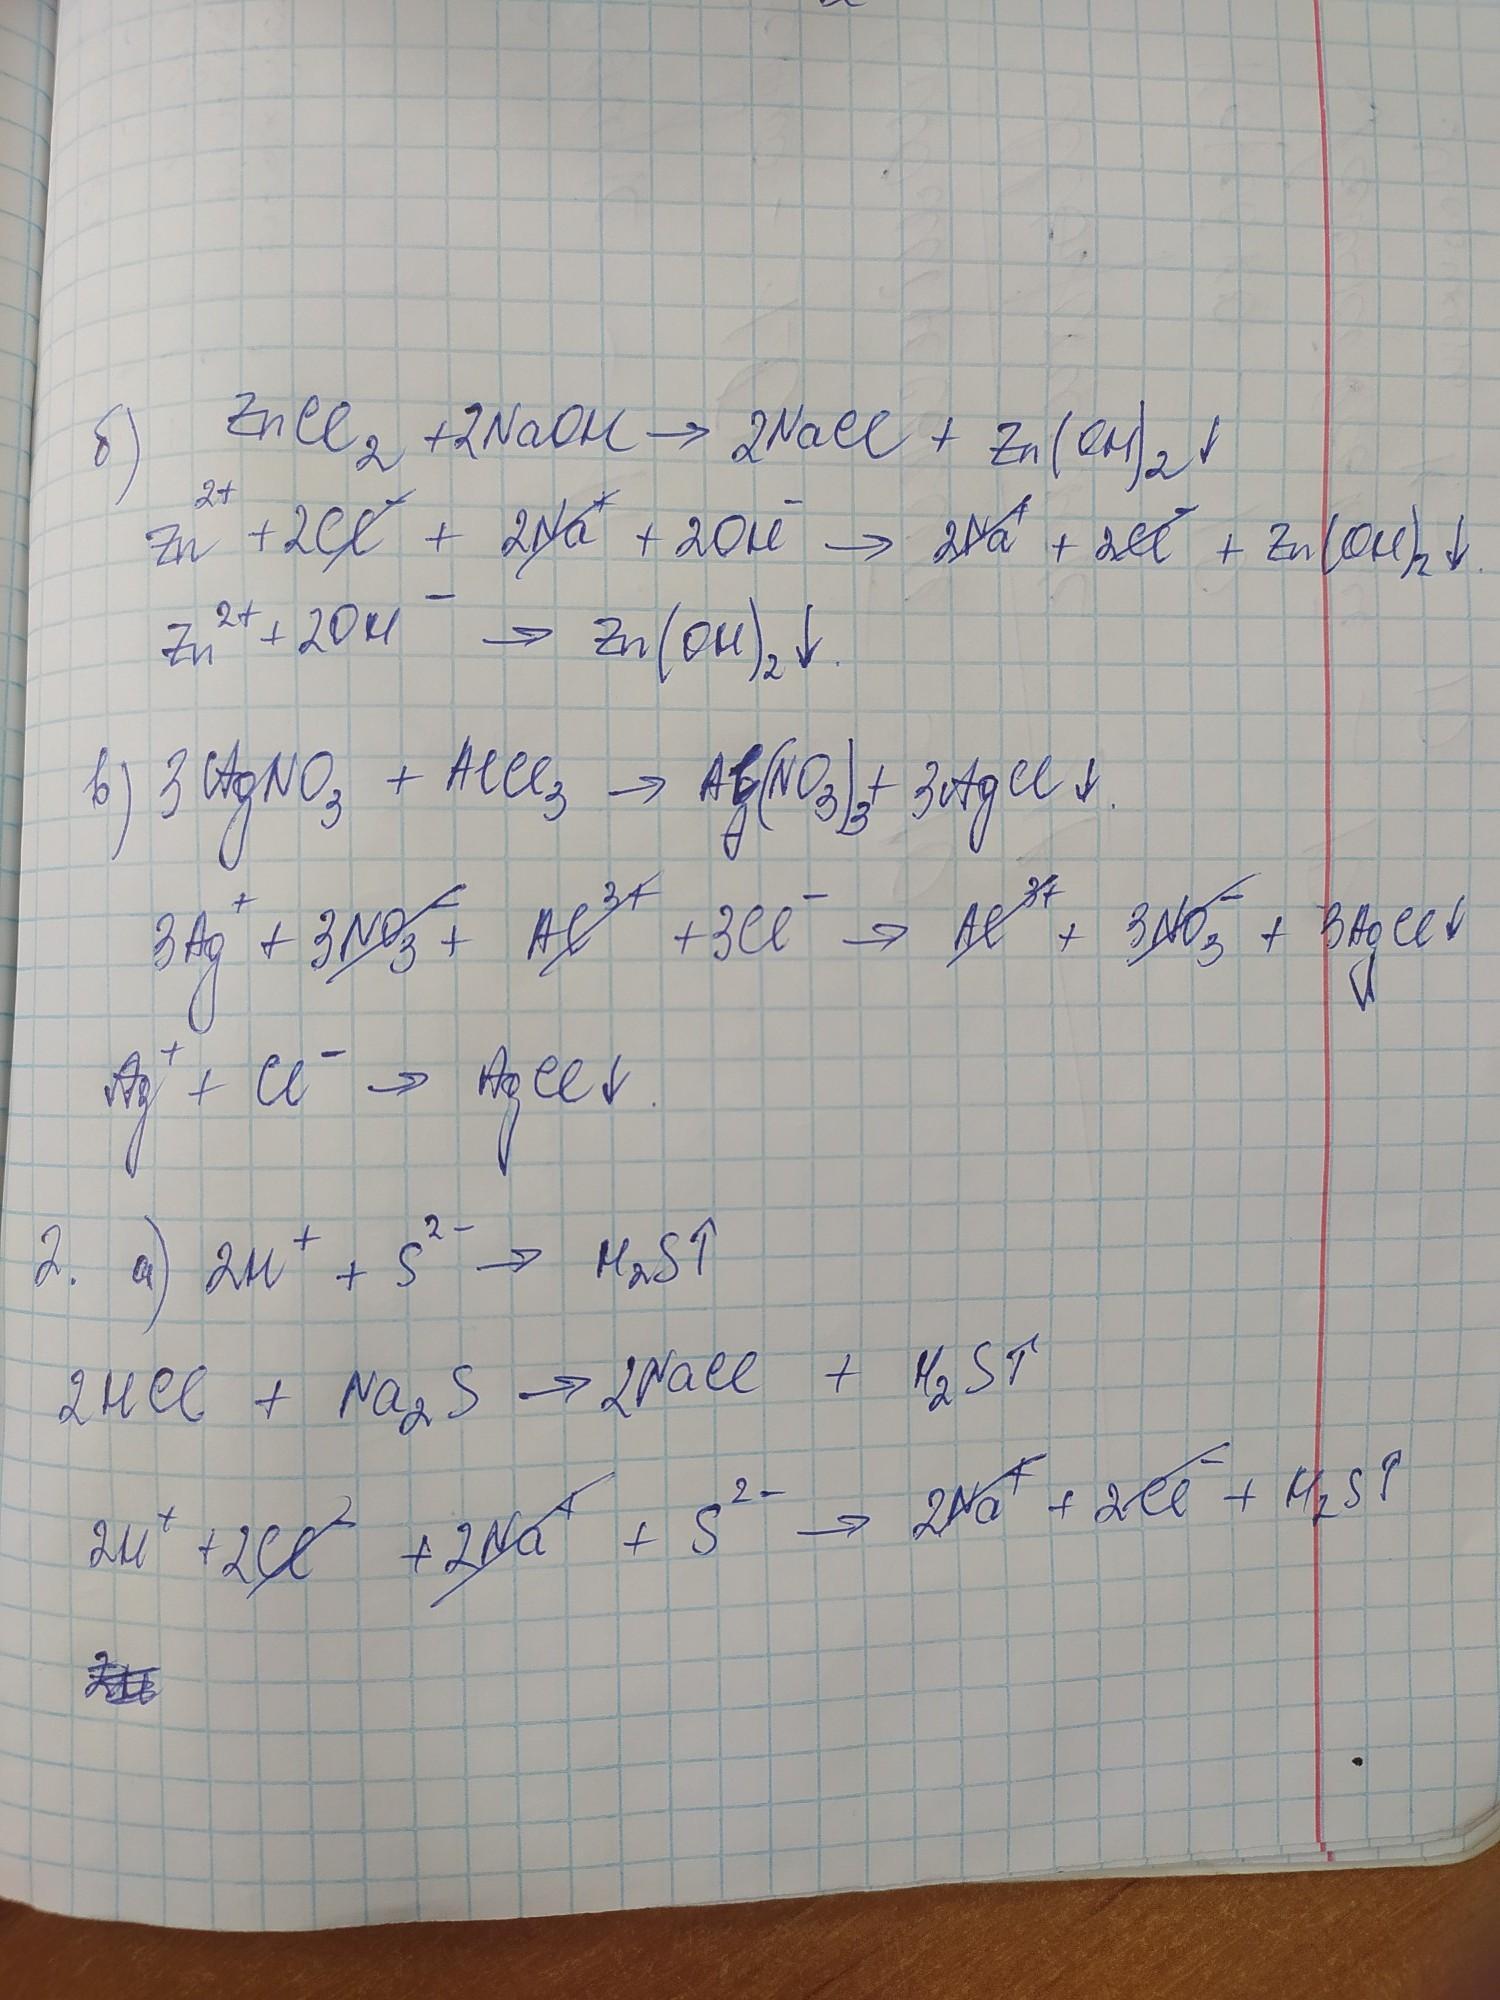 б) ZnCl₂ + 2NaOH → 2NaCl + Zn(OH)₂↓
Zn²⁺ + 2Cl⁻ + 2Na⁺ + 2OH⁻ → 2Na⁺ + 2Cl⁻ + Zn(OH)₂↓.
Zn²⁺ + 2OH⁻ → Zn(OH)₂↓.
в) 3AgNO₃ + AlCl₃ → Al(NO₃)₃ + 3AgCl↓.
3Ag⁺ + 3NO₃⁻ + Al³⁺ + 3Cl⁻ → Al³⁺ + 3NO₃⁻ + 3AgCl↓
Ag⁺ + Cl⁻ → AgCl↓.
2. а) 2H⁺ + S²⁻ → H₂S↑
2HCl + Na₂S → 2NaCl + H₂S↑
2H⁺ + 2Cl⁻ + 2Na⁺ + S²⁻ → 2Na⁺ + 2Cl⁻ + H₂S↑